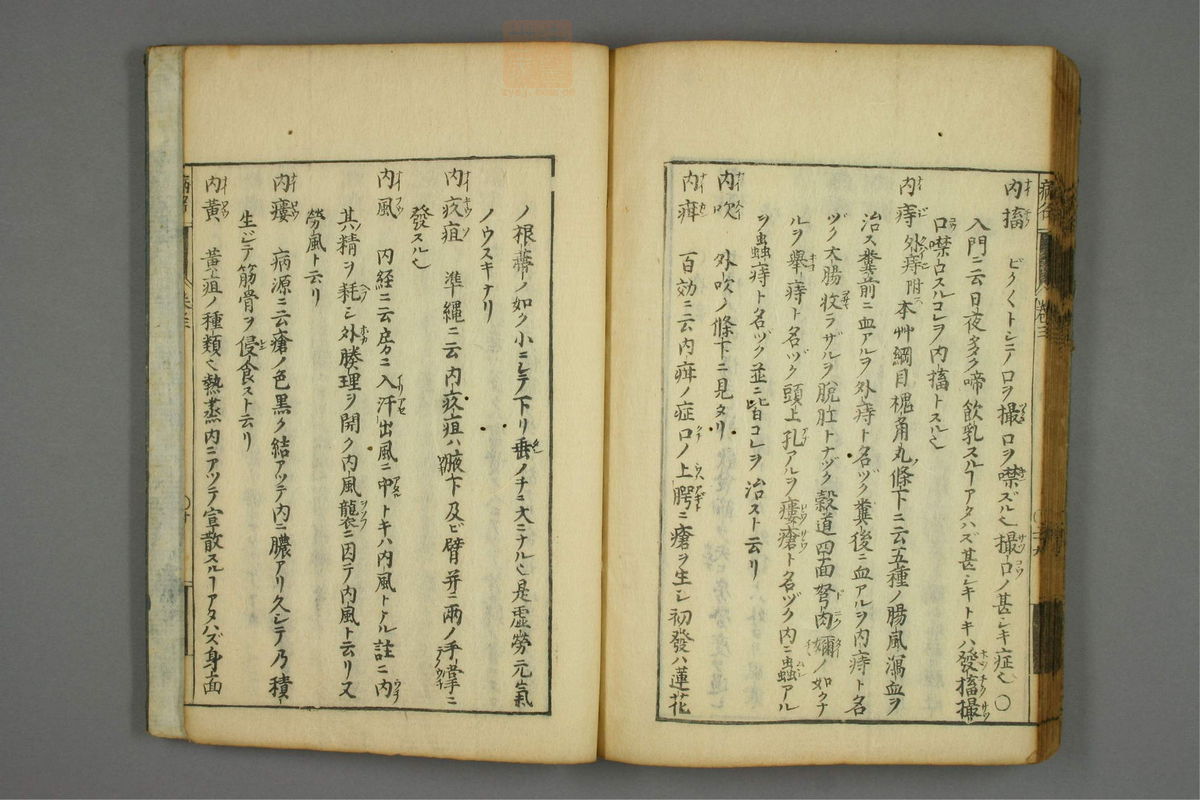 内搐 ビクビクトシテノ口ヲ撮口ヲ噤ズル也撮口ノ甚シキ症也〇
入門ニ云日夜多ク啼飲乳スルヿアタハズ甚シキトキハ發搐撮
口噤ロスルコレヲ内搐トスル也
内痔 外痔附 本艸綱目槐角丸ノ條下ニ云五種ノ腸風瀉血ヲ
治ス糞前ニ血アルヲ外痔ト名ヅク糞後ニ血アルヲ内痔ト名
ヅク大腸收ラザルヲ脫肛トナヅク穀道四面弩肉嬭ノ如クナ
ルヲ舉痔ト名ヅク頭上孔アルヲ瘻瘡ト名ヅク内ニ蟲アル
ヲ蟲痔ト名ヅク並ニ皆コレヲ治スト云リ
内吹 外吹ノ條下ニ見タリ
内疳 百効ニ云内疳ノ症口ノ上腭ニ瘡ヲ生シ初發ハ蓮花
ノ根蔕ノ如ク小ニシテ下リ垂ノチニ大ニナル也是虛勞元氣
ノウスキナリ
内疚疽 準繩ニ云内疚疽ハ腋下及ビ臂并ニ兩ノ手掌ニ
發スル也
内風 内経ニ云房ニ入汗出風ニ中トキハ内風トナル註ニ内
其精ヲ耗シ外腠理ヲ開ク内風襲ニ因テ内風ト云リ又
勞風ト云リ
内瘻 病源ニ云瘡ノ色黒ク結アツテ内ニ膿アリ久シテ乃積
生シテ筋骨ヲ侵食スト云リ
内黃 黃疸ノ種類也熱蒸内ニアツテ宣散スルヿアタハズ身面